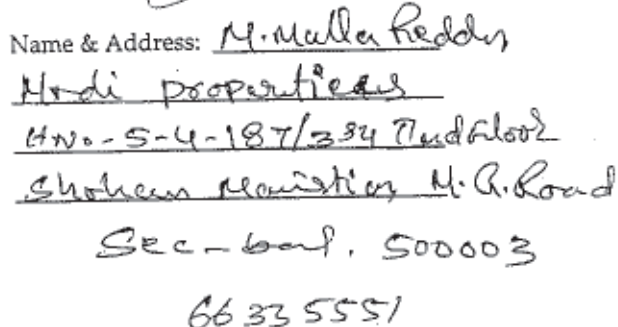 Name & Address: M. Malla Reddy
Modi properties
HNo-5-4-187/3&4 IInd floor
Soham Mansion M.G. Road
Sec-bad. 500003
66335551